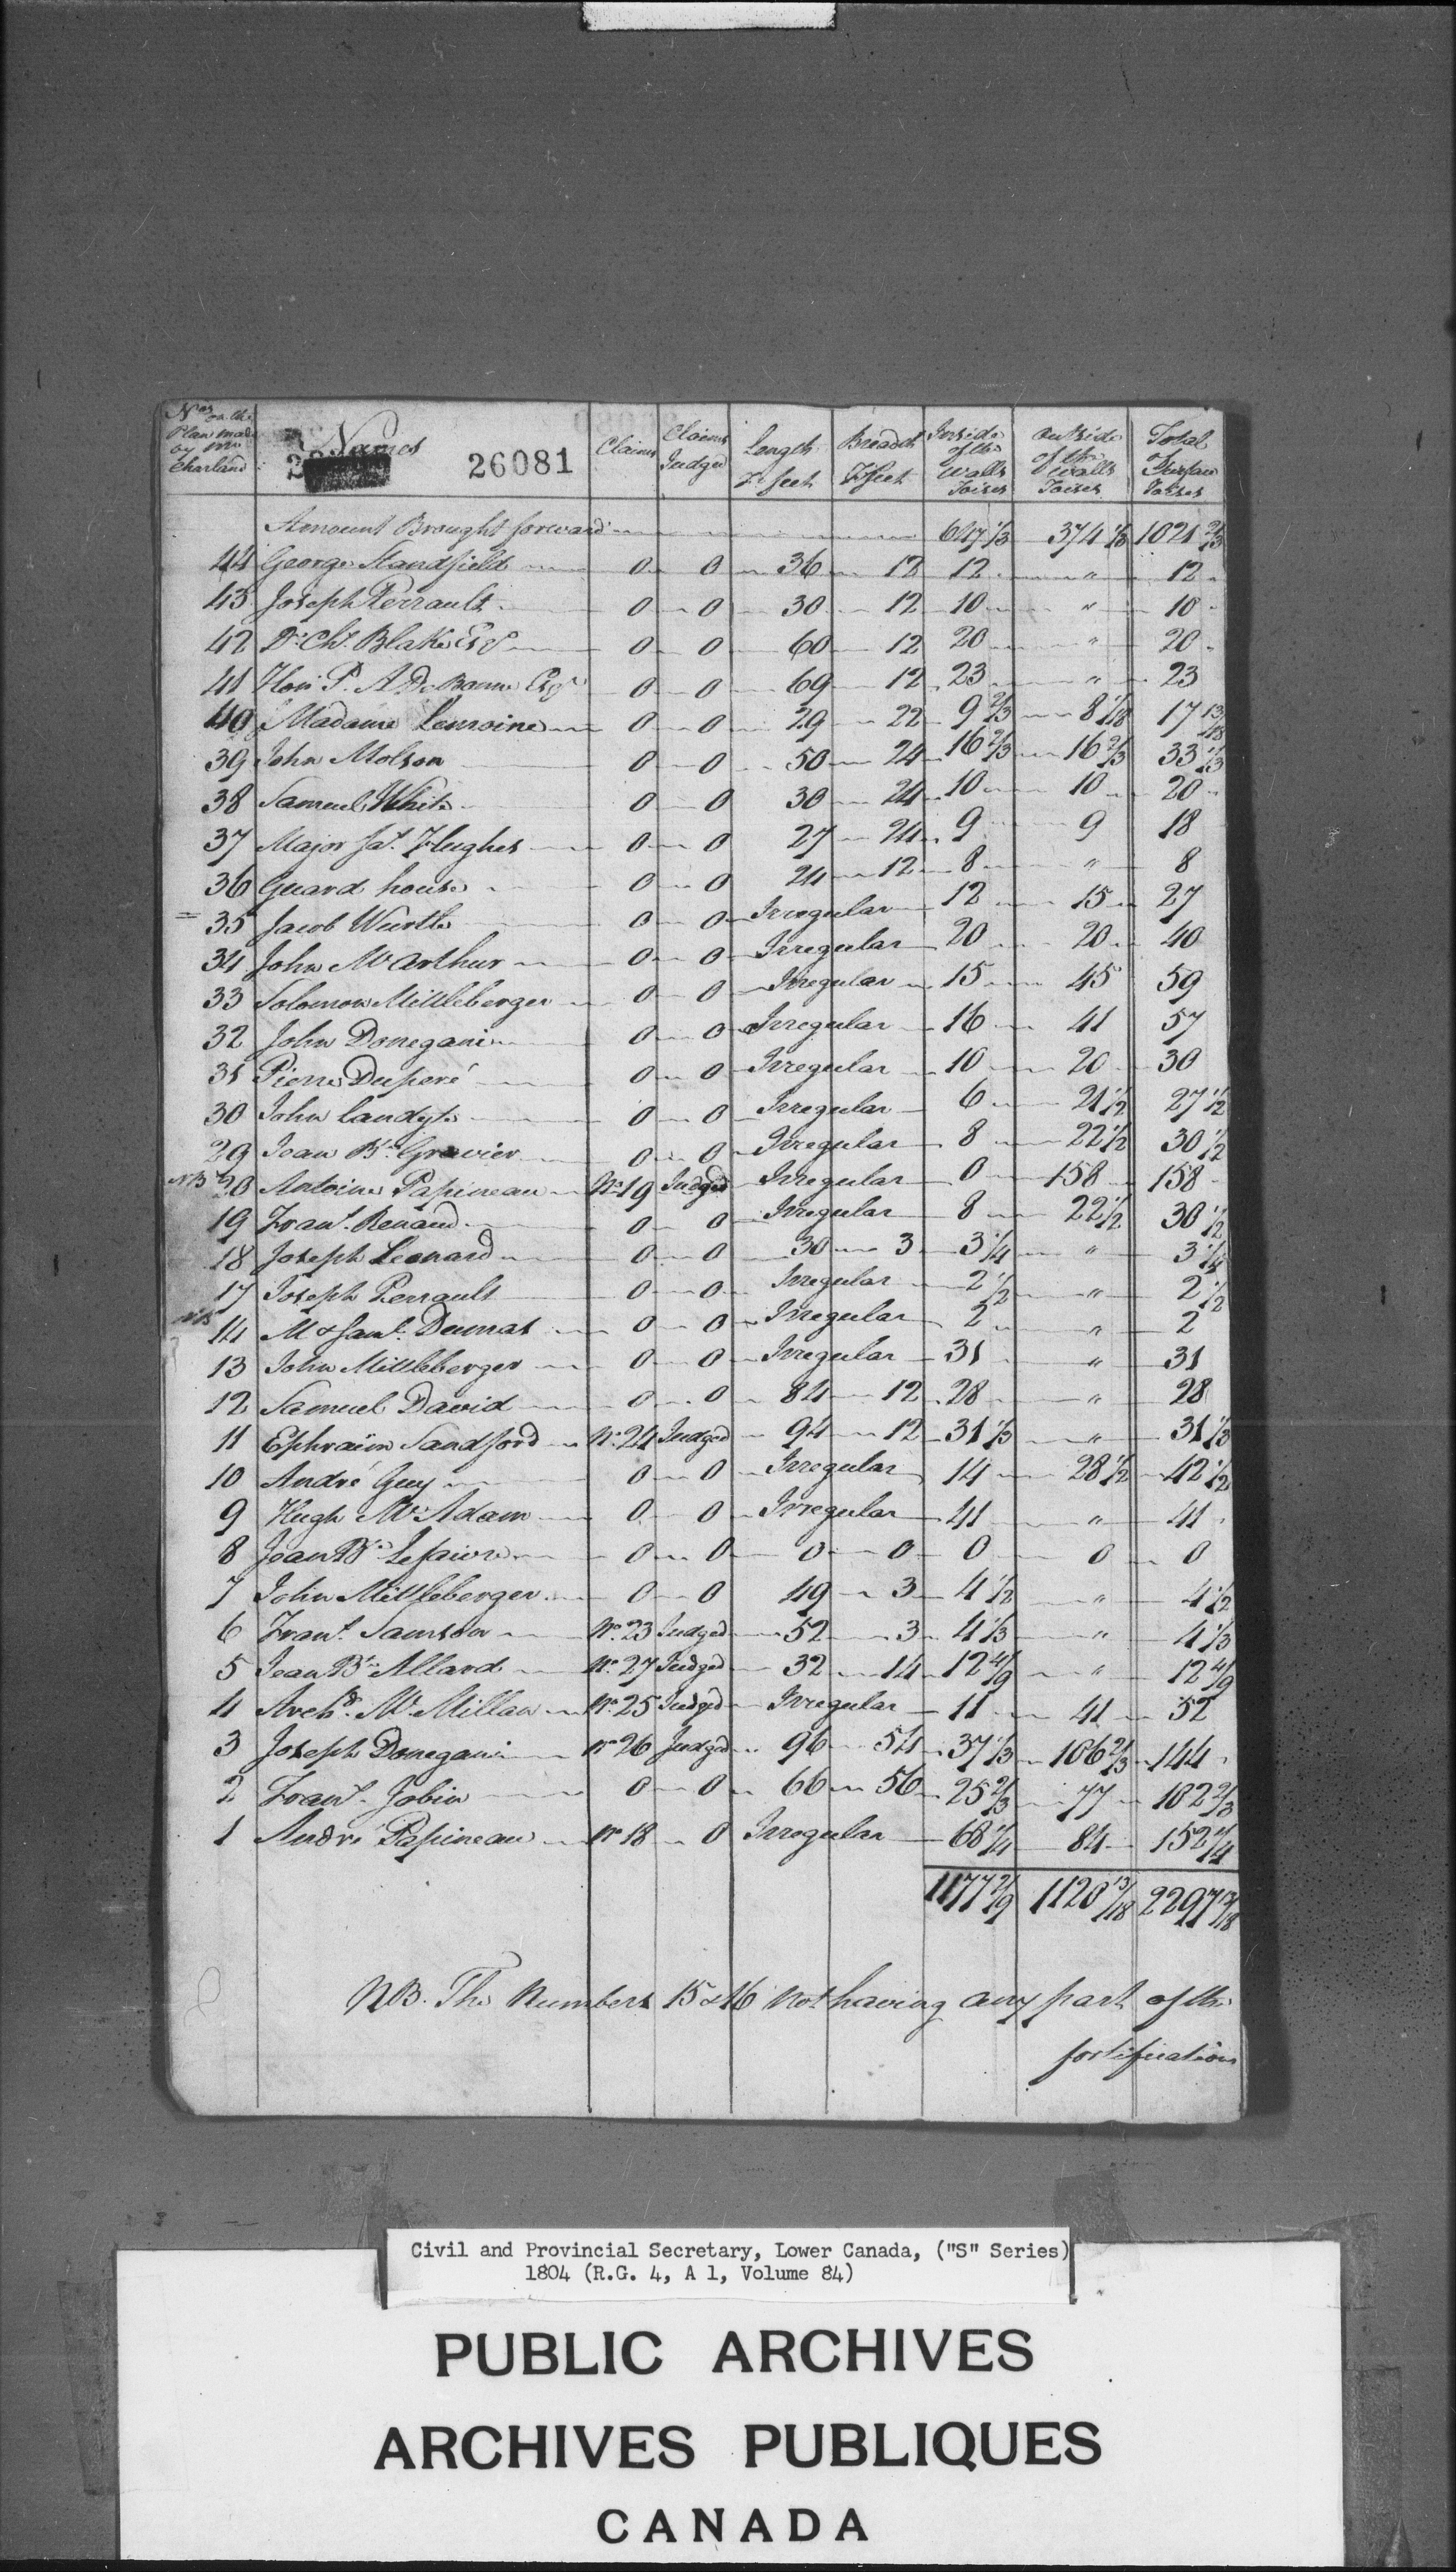 Nos on the Plan made by Mr Charland | Names 26081 | Claims | Claims Judged | Length F feet | Breadth F feet | Inside of the Walls Toises | Outside of the Walls Toises | Total of Surface Toises
Amount Brought forward 647 1/3 374 1/3 1021 2/3
44 George Standfield 0 0 36 12 12 " 12
43 Joseph Perrault 0 0 30 12 10 " 10
42 Dr. Chs. Blake Esqr 0 0 60 12 20 " 20
41 Hon P. A De Bonne Esqr 0 0 69 12 23 " 23
40 Madame Lemoine 0 0 29 22 9 2/3 8 1/18 17 13/18
39 John Molson 0 0 50 24 16 2/3 16 2/3 33 1/3
38 Samuel White 0 0 30 24 10 10 20
37 Major Js. Hughes 0 0 27 24 9 9 18
36 Guard house 0 0 24 12 8 " 8
= 35 Jacob Wurtle 0 0 Irregular 12 15 27
34 John McArthur 0 0 Irregular 20 20 40
33 Solomon Mittleberger 0 0 Irregular 15 45 59
32 John Donegani 0 0 Irregular 16 41 57
31 Pierre Duperé 0 0 Irregular 10 20 30
30 John Landys 0 0 Irregular 6 21 1/2 27 1/2
29 Jean Bte Gravier 0 0 Irregular 8 22 1/2 30 1/2
NB 20 Antoine Papineau No 19 Judged Irregular 0 158 158
19 Frans. Renaud 0 0 Irregular 8 22 1/2 30 1/2
18 Joseph Leonard 0 0 30 3 3 1/4 " 3 1/4
17 Joseph Perrault 0 0 Irregular 2 1/2 " 2 1/2
NB 14 M & Saml. Dumas 0 0 Irregular 2 " 2
13 John Mittleberger 0 0 Irregular 31 " 31
12 Samuel David 0 0 84 12 28 " 28
11 Ephraim Sandford No. 24 Judged 94 12 31 1/3 " 31 1/3
10 André Guy 0 0 Irregular 14 28 1/2 42 1/2
9 Hugh McAdam 0 0 Irregular 41 " 41
8 Jean Bte Lefaivre 0 0 0 0 0 0 0
7 John Mittleberger 0 0 49 3 4 1/2 " 4 1/2
6 Frans. Samson No. 23 Judged 52 3 4 1/3 " 4 1/3
5 Jean Bte Allard No. 27 Judged 32 14 12 4/9 " 12 4/9
4 Archd. McMillan No. 25 Judged Irregular 11 41 52
3 Joseph Donegani No 26 Judged 96 54 37 1/3 106 2/3 144
2 Frans. Jobin 0 0 66 56 25 2/3 77 102 2/3
1 André Papineau No 18 0 Irregular 68 1/4 84 152 1/4
1177 2/9 1120 13/18 2297 13/18
NB. The Numbers 15 & 16 not having any part of the
fortification
Civil and Provincial Secretary, Lower Canada, ("S" Series)
1804 (R.G. 4, A 1, Volume 84)
PUBLIC ARCHIVES
ARCHIVES PUBLIQUES
CANADA